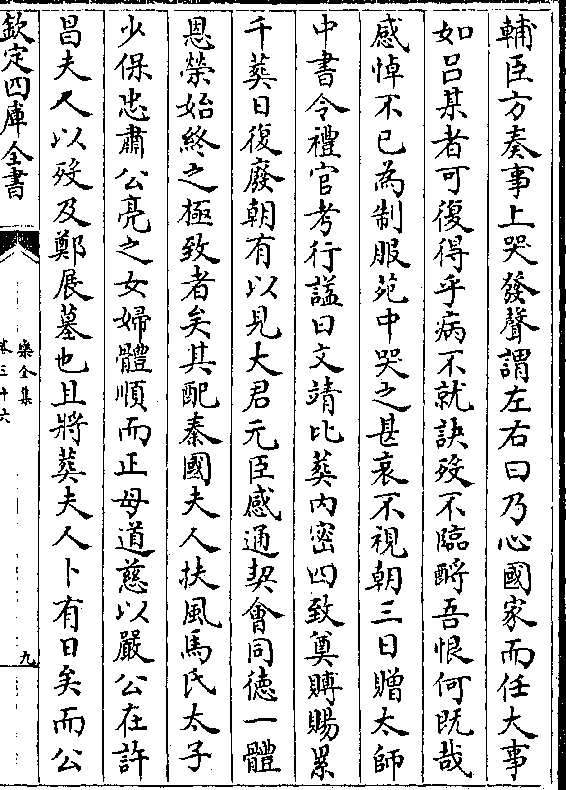 輔臣方奏事上哭發聲謂左右曰乃心國家而任大事
如吕某者可復得乎病不就訣歿不臨酹吾恨何既哉
感悼不已為制服苑中哭之甚哀不視朝三日贈太師
中書令禮官考行諡曰文靖比葬内密四致奠賻賜累
千葬日復廢朝有以見大君元臣感通契會同徳一體
恩榮始終之極致者矣其配秦國夫人扶風馬氏太子
少保忠肅公亮之女婦體順而正母道慈以嚴公在許
昌夫人以歿及鄭展墓也且將葬夫人卜有日矣而公
欽定四庫全書
樂全集
卷三十六
九